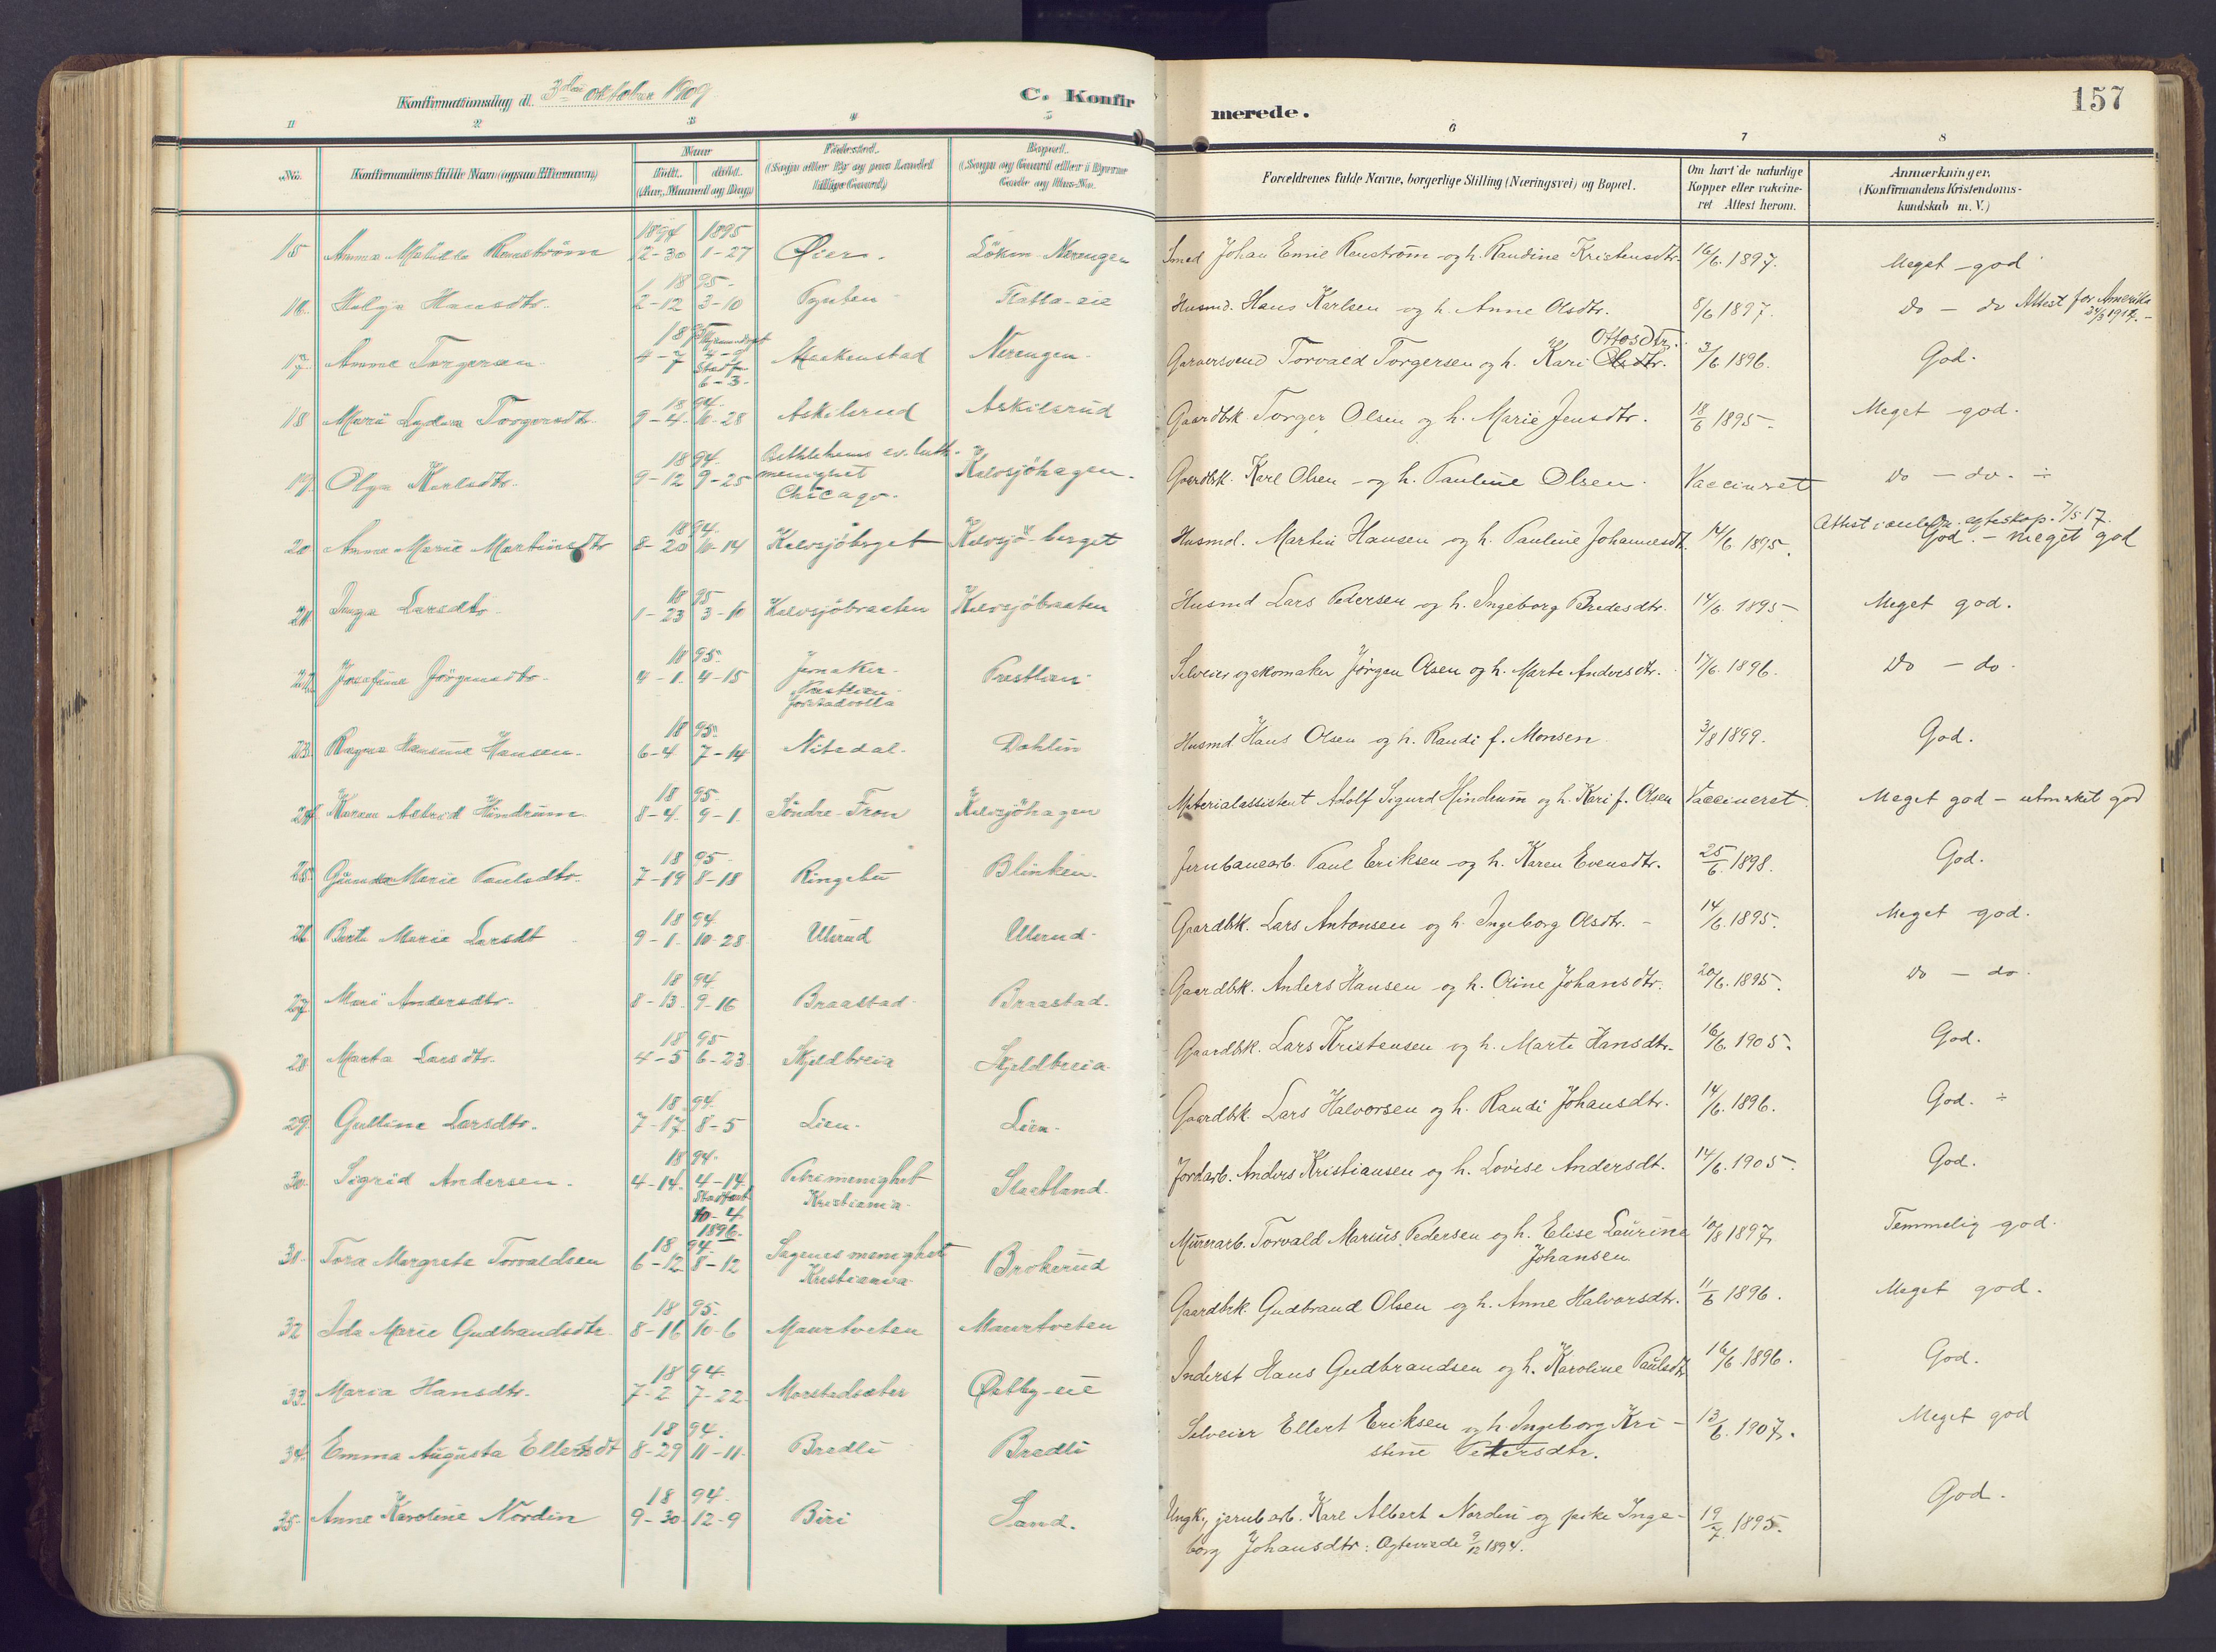 Konfirmationsdag d. 3die oktober 1909
C. Konfir merede. 157
1 2 3 4 5 6 7 8
No. Konfirmandens fulde Navn (ogsaa Efternavn) Naar Født. døbt. (Aar, Maaned og Dag) Fødested. (Sogn eller By og paa Landet tillige Gaard) Bopæl. (Sogn og Gaard eller i Byerne Gade og Hus-No. Forældrenes fulde Navne, borgerlige Stilling (Næringsvei) og Bopæl. Om havt de naturlige Kopper eller vakcineret Attest herom. Anmærkninger. (Konfirmandens Kristendomskundskab m. V.)
15 Anna Matilde Renström 1894 12-30 1895 1-27 Öier. Löken-Nerengen Smed Johan Emil Renström og h. Randine Kristensdtr. 16/6. 1897. Meget-god
16. Helga Hansdtr. 1895- 2-12 3-10 Pynten- Flatla-eie Husmd. Hans Karlsen og h. Anne Olsdtr. 8/6 1897. do - do Attest for Amerika
17. Anne Torgersen 4-7 6-3- Nerengen- Garversvend Torvald Torgersen og h. Kari Olsdtr. Ottosdtr. 3/6 1896. God.
18 Mari Lydia Torgersdtr. 1894. 9-4. 10-28 Askilsrud Askilsrud Gaardbk. Torger Olsen og h. Marie Jensdtr. 18/6 1895-. Meget-god.
19. Olga Karlsdtr. 1894. 9-12 9-25 Bethlehems ev. luth. menighet Chicago. Kalvsjöhagen. Gaardbk. Karl Olsen - og h. Pauline Olsen. Vaccineret do - do. ÷
20 Anna Marie Martinsdtr 1894. 8-20 10-14 Kalvsjöberget Kalvsjö-berget Husmd. Martin Hansen og h. Pauline Johannesdt. 14/6 1895. Attest i anledn. egteskap. 7/5 17. God. - meget god
21 Inga Larsdtr. 1895 1-23 3-10 Kalvsjöbraaten Kalvsjöbraaten Husmd Lars Pedersen og h. Ingeborg Bredesdtr. 14/6. 1895- Meget god.
22 Josefine Jörgensdtr. 1895. 4-1. 4-15 Jevnaker- Prestlien- Selveier og skomaker Jörgen Olsen og h. Marte Andersdtr. 17/6. 1896. do - do.
23. Ragna Hansine Hansen. 1895. 6-4 7-14 Nitedal. Dahlin Husmd Hans Olsen og h. Randi f. Monsen 3/8 1899. God.
24 Karen Astrid Hindrum 1895. 8-4. 9-1 Söndre-Fron Kalvsjöhagen Materialassistent Adolf Sigurd Hindrum og h. Kari f. Olsen Vaccineret Meget god - utmerket god
25. Gunda Marie Paulsdtr. 1895- 7-19 8-18 Ringebu Blinken. Jernbanearb. Paul Eriksen og h. Karen Evensdtr. 25/6. 1898. God.
26 Berte Marie Larsdt 1894. 9-1. 10-28 Ullerud Ullerud- Gaardbk. Lars Antonsen og h. Ingeborg Olsdtr. - 14/6. 1895. Meget god.
27. Mari Andersdtr. 1894. 8-13. 9-16 Braastad Braastad. Gaardbk. Anders Hansen og h. Oline Johansdtr. 20/6. 1895. do - do.
28 Marta Larsdtr. 1895 4-5 6-23 Skjeldbreia Skjeldbreia. Gaardbk. Lars Kristensen og h. Marte Hansdtr. 16/6. 1905. God.
29. Gulline Larsdtr. 1894. 7-17. 8-5 Lien. Lien. Gaardbk. Lars Halvorsen og h. Randi Johansdtr. 14/6. 1896. God. ÷
30. Sigrid Andersen. 1894. 4-14. 4-14. Stadfæst 10-4 1896. Petri menighet Kristiania Slaatland. Jordarb. Anders Kristiansen og h. Lovise Andersdt. 14/6. 1905. God.
31. Tora Margrete Torvaldsen 1894. 6-12 8-12 Sagenes menighet Kristiania Brokerud Murerarb. Torvald Marius Pedersen og h. Elise Laurine Johansen 10/8 1897. Temmelig god.
32 Ida Marie Gudbrandsdtr. 1895. 8-16 10-6 Maurtveten Maurtveten Gaardbrk. Gudbrand Olsen og h. Anne Halvorsdtr. 11/6 1896. Meget god.
33. Maria Hansdtr. 1894. 7-2. 7-22. Morstadsæter Østby-eie Inderst Hans Gudbrandsen og h. Karoline Paulsdtr 16/6 1896. God.
34. Emma Augusta Ellertsdt 1894. 8-29 11-11. Bredli Bredli Selveier Ellert Eriksen og h. Ingeborg Kristine Petersdtr. 13/6. 1907. Meget god
35. Anne Karoline Nordin 1894. 9-30 12-9 Biri Sand. Ungk., jernb.arb. Karl Albert Nordin og pike Ingeborg Johansdtr: Egteviede 9/12 1894. 19/7. 1895. God.